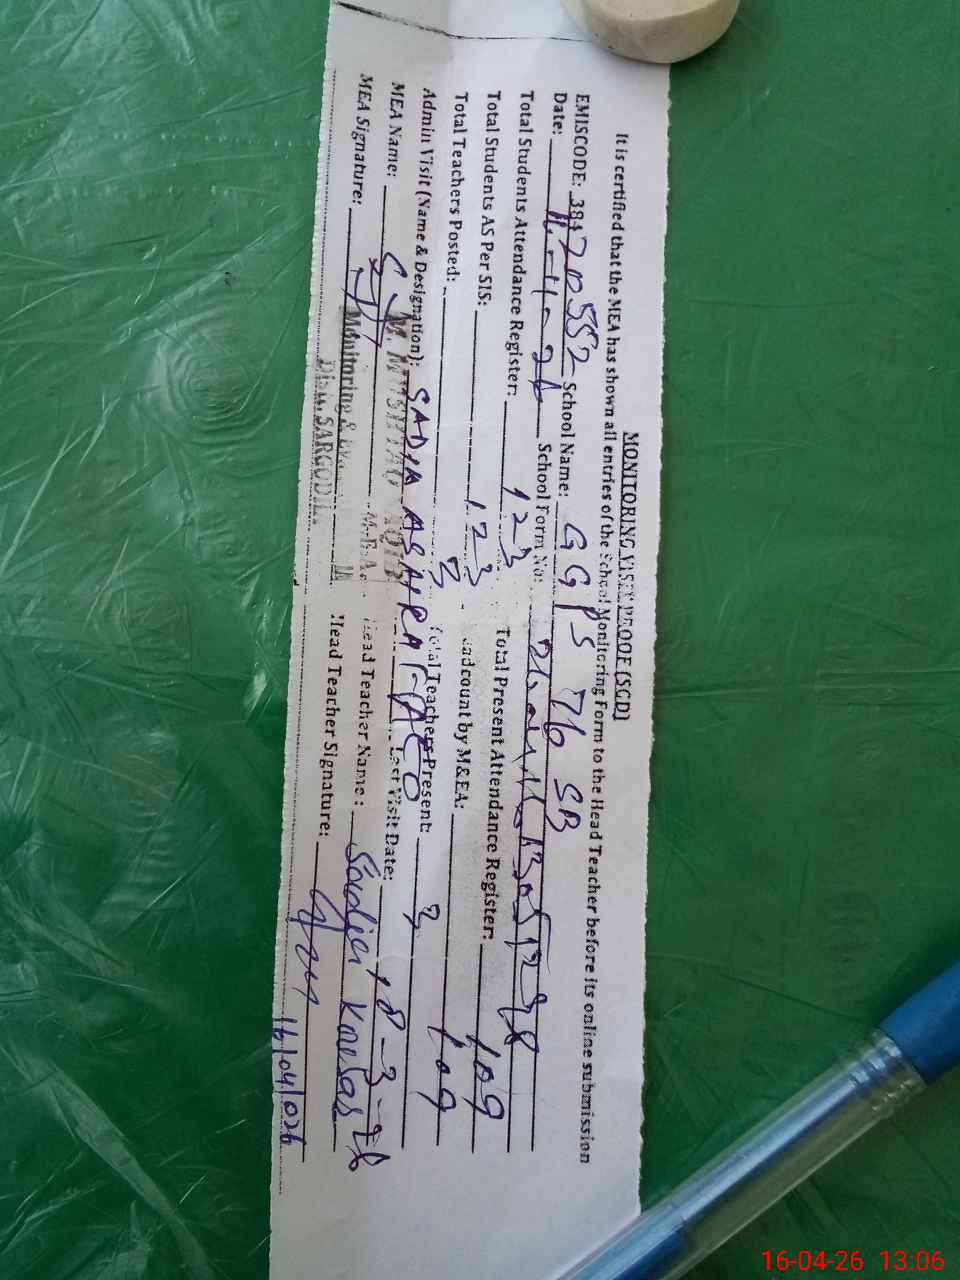 MONITORING VISIT PROOF (SCD)
It is certified that the MEA has shown all entries of the School Monitoring Form to the Head Teacher before its online submission
EMISCODE: 38470552 School Name: GGPS 76 SB
Date: 16-4-26 School Form No:
Total Students Attendance Register: 123 Total Present Attendance Register: 109
Total Students AS Per SIS: 123 Headcount by M&EA: 109
Total Teachers Posted: 3 Total Teachers Present: 3
Admin Visit (Name & Designation): SADIA ASHRAF AEO Last Visit Date: 18-3-26
MEA Name: M. MUSHTAQ M.E.A. Head Teacher Name: Sadia Kausar
MEA Signature: Monitoring & Head Teacher Signature:
Distt. SARGODHA
16/04/026
16-04-26 13:06